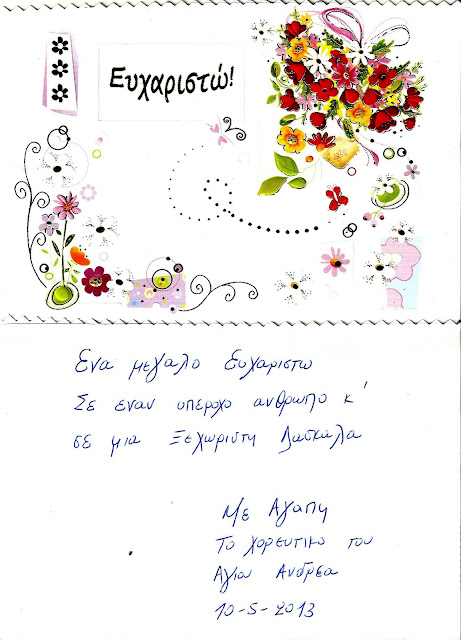 Ευχαριστώ!
Ενα μεγαλο Ευχαριστω
Σε εναν υπεροχο ανθρωπο κ'
σε μια Ξεχωριστη Δασκαλα
Με Αγαπη
Το χορευτικο του
Αγιου Ανδρεα
10-5-2013